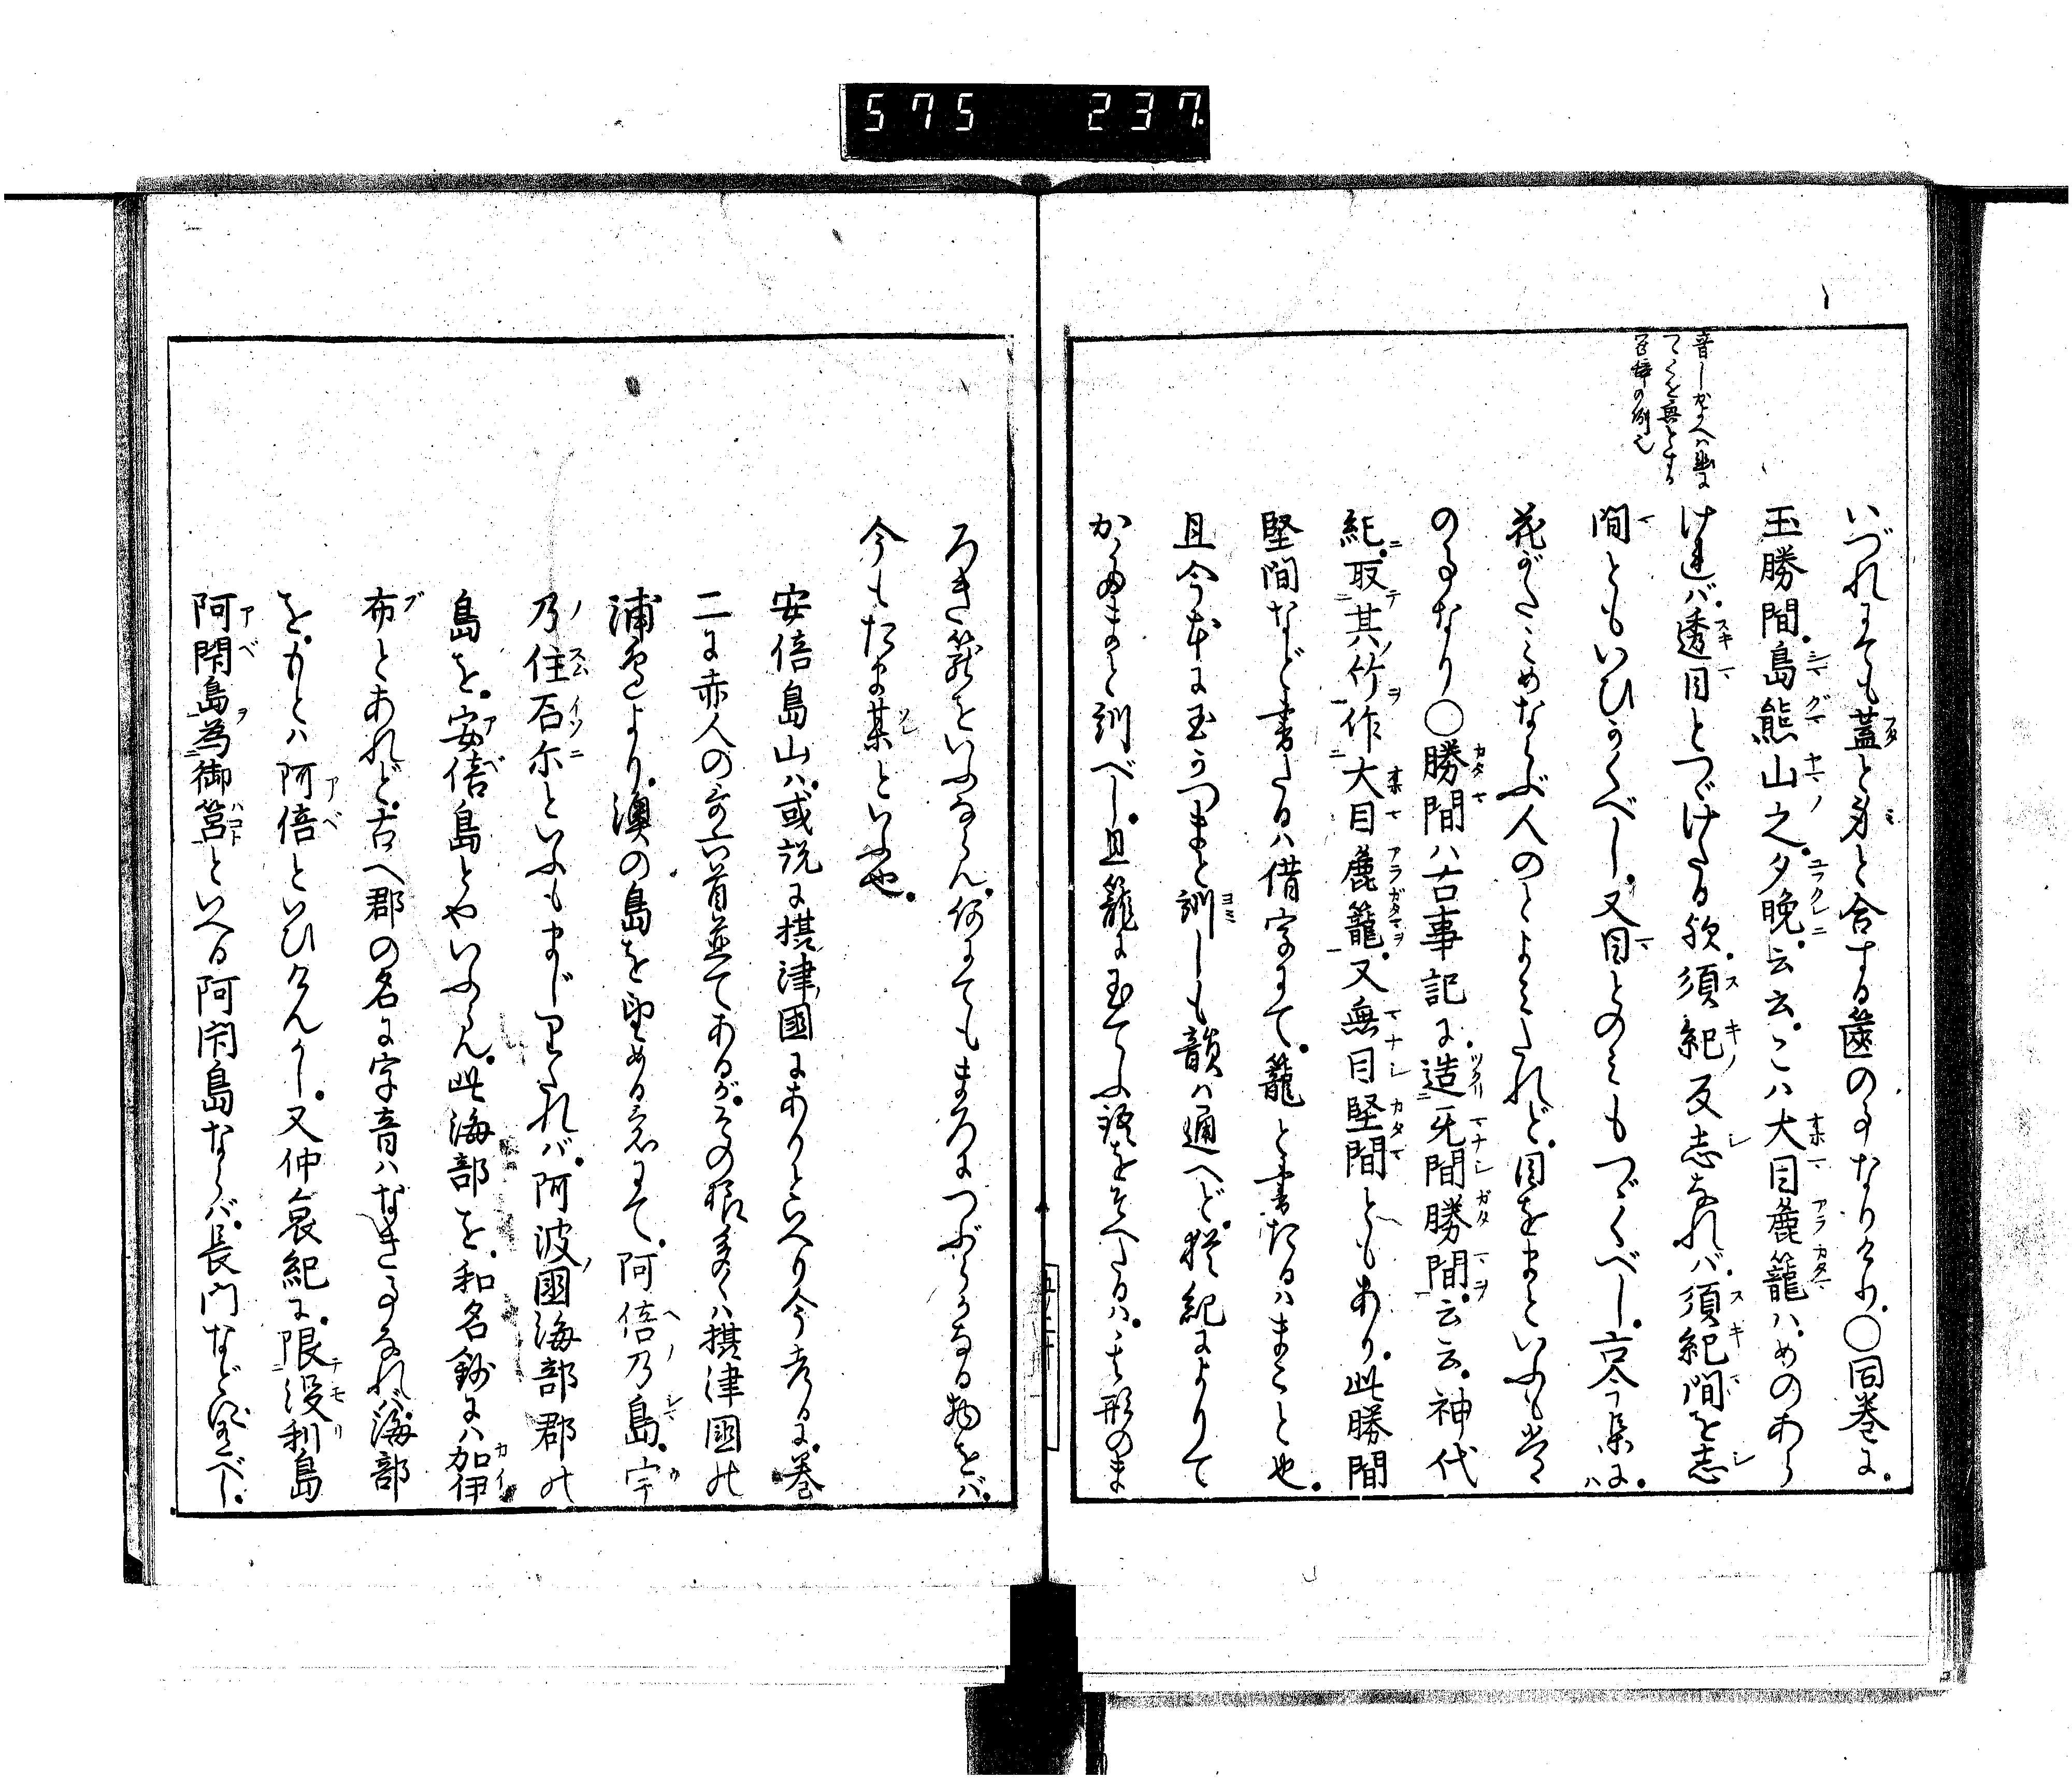 575 237
音しかよへは㽵に
てを無とする
冠辞の例也
いづれにても蓋と身と合する籩のことなりけり。〇同巻に。
玉勝間。島熊山之。夕晩。云云。こハ大目麁籠ハ。めのあら
ければ。透目とつゞけたる歟。須紀反志なれバ。須紀間を志
間ともいひつべし。又目とのみもつゞくべし。古今集に。
花がたみめならぶ人のとよみたれど。目をまといふも常
のことなり〇勝間ハ古事記に。造旡間勝間。云云。神代
紀。取其竹作大目麁籠。又無目堅間ともあり。此勝間
堅間など書たるハ借字にて。籠と書たるハまこと也。
且今本に玉かつまと訓しも韻は通へど。猶紀によりて
かたまと訓べし。且籠に玉てふ語をそへたるハ。其形のま
ろき籠をいふならん。何にてもまろにつぶらなる物をバ。
今もたま某といふ也。
安倍島山ハ。或説に摂津國にありといへり今考るに。巻
二に赤人の哥六首並てあるが。その類多くハ摂津國の
浦邊より。澳の島を望める意にて。阿倍乃島。宇
乃住石尓といふもまじりたれバ。阿波國海部郡の
島を。安倍島とやいふらん。此海部を。和名鈔にハ加伊
布とあれど。古へ郡の名に字音ハなきことなれバ。海部
を。もとハ阿倍といひけんかし。又仲哀紀に。限没利島
阿閇島為御筥といへる阿閇島ならバ。長門など望べし。